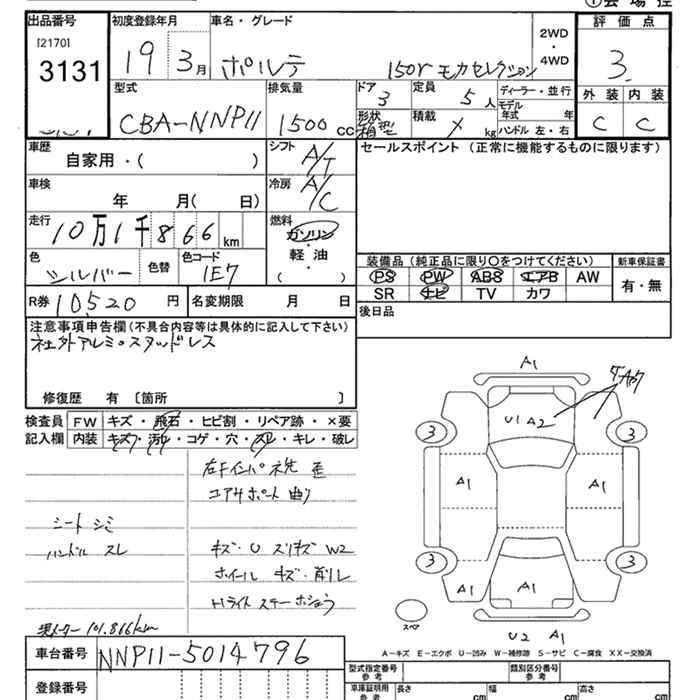 出品番号 [2170] 3131
初度登録年月 19 3月
車名・グレード ポルテ 150r モカセレクション
2WD・4WD
評価点 3
外装 C 内装 C
型式 CBA-NNP11
排気量 1500 cc
ドア 3 形状 箱型
定員 5 人 積載 kg
ディーラー・並行
モデル年式 年
ハンドル 左・右
車歴 自家用・( )
シフト A/T
セールスポイント (正常に機能するものに限ります)
車検 年 月( 日)
冷房 A/C
走行 10万1千866km
燃料 ガソリン 軽油・( )
色 シルバー 色替
色コード 1E7
装備品 (純正品に限り○をつけてください)
新車保証書 有・無
PS PW ABS エアB AW
SR ナビ TV カワ
R券 10,520 円
名変期限 月 日
後日品
注意事項申告欄(不具合内容等は具体的に記入して下さい)
社外アルミ・スタッドレス
修復歴 有 〔箇所 〕
検査員記入欄
FW キズ・飛石・ヒビ割・リペア跡・×要
内装 キズ・汚れ・コゲ・穴・スレ・キレ・破レ
右Fインパネ先 歪
コアサポート 曲り
シート シミ
ハンドル スレ
キズ・U スリキズ W2
ホイール キズ・削レ
現メーター 101.866km
車台番号 NNP11-5014796
登録番号
A1
U1 A2
3 3
A1 A1
3 3
A1 A1
スペア
U2 A1
A-キズ E-エクボ U-凹み W-補修跡 S-サビ C-腐食 XX-交換済
型式指定番号 参考
類別区分番号 参考
車庫証明用 参考 長さ cm 幅 cm 高さ cm